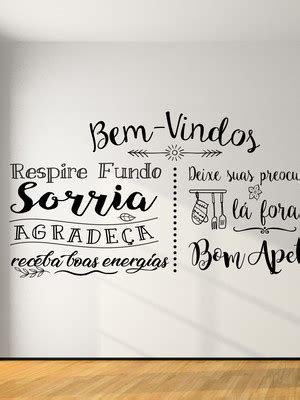 Bem-Vindos
Respire Fundo
Sorria
AGRADEÇA
receba boas energias
Deixe suas preocu
lá fora
Bom Apet